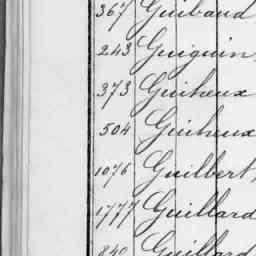 367 Guibaud
243 Guiguin
373 Guiheux
504 Guiheux
1076 Guilbert,
1777 Guillard
840 Guillard